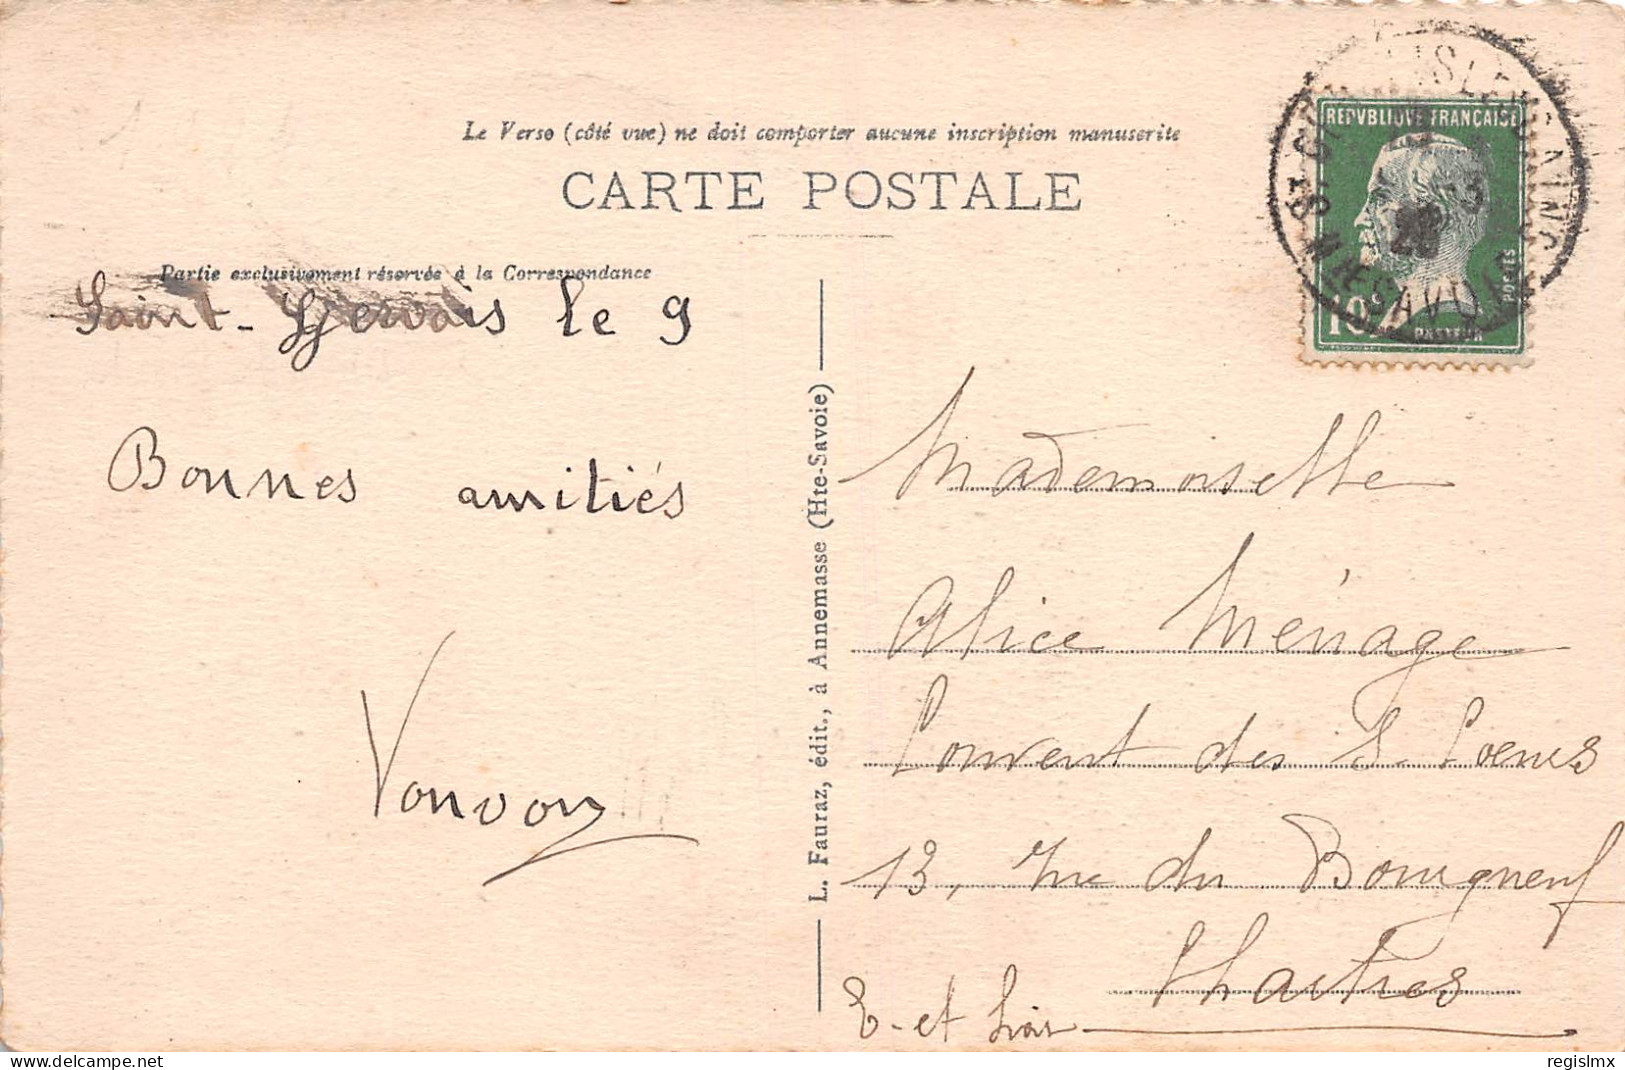 Le Verso (côté vue) ne doit comporter aucune inscription manuscrite
CARTE POSTALE
Partie exclusivement réservée à la Correspondance
Saint-Gervais le 9
Bonnes amitiés
L. Fauraz, édit., à Annemasse (Hte-Savoie)
REPVBLIQVE FRANÇAISE
POSTES
10c
PASTEUR
LES BAINS
HTE SAVOIE
Mademoiselle
Alice Ménage
Couvent des S. Coeurs
13, rue du Bourgneuf
Chartres
E-et Loir
regislmx